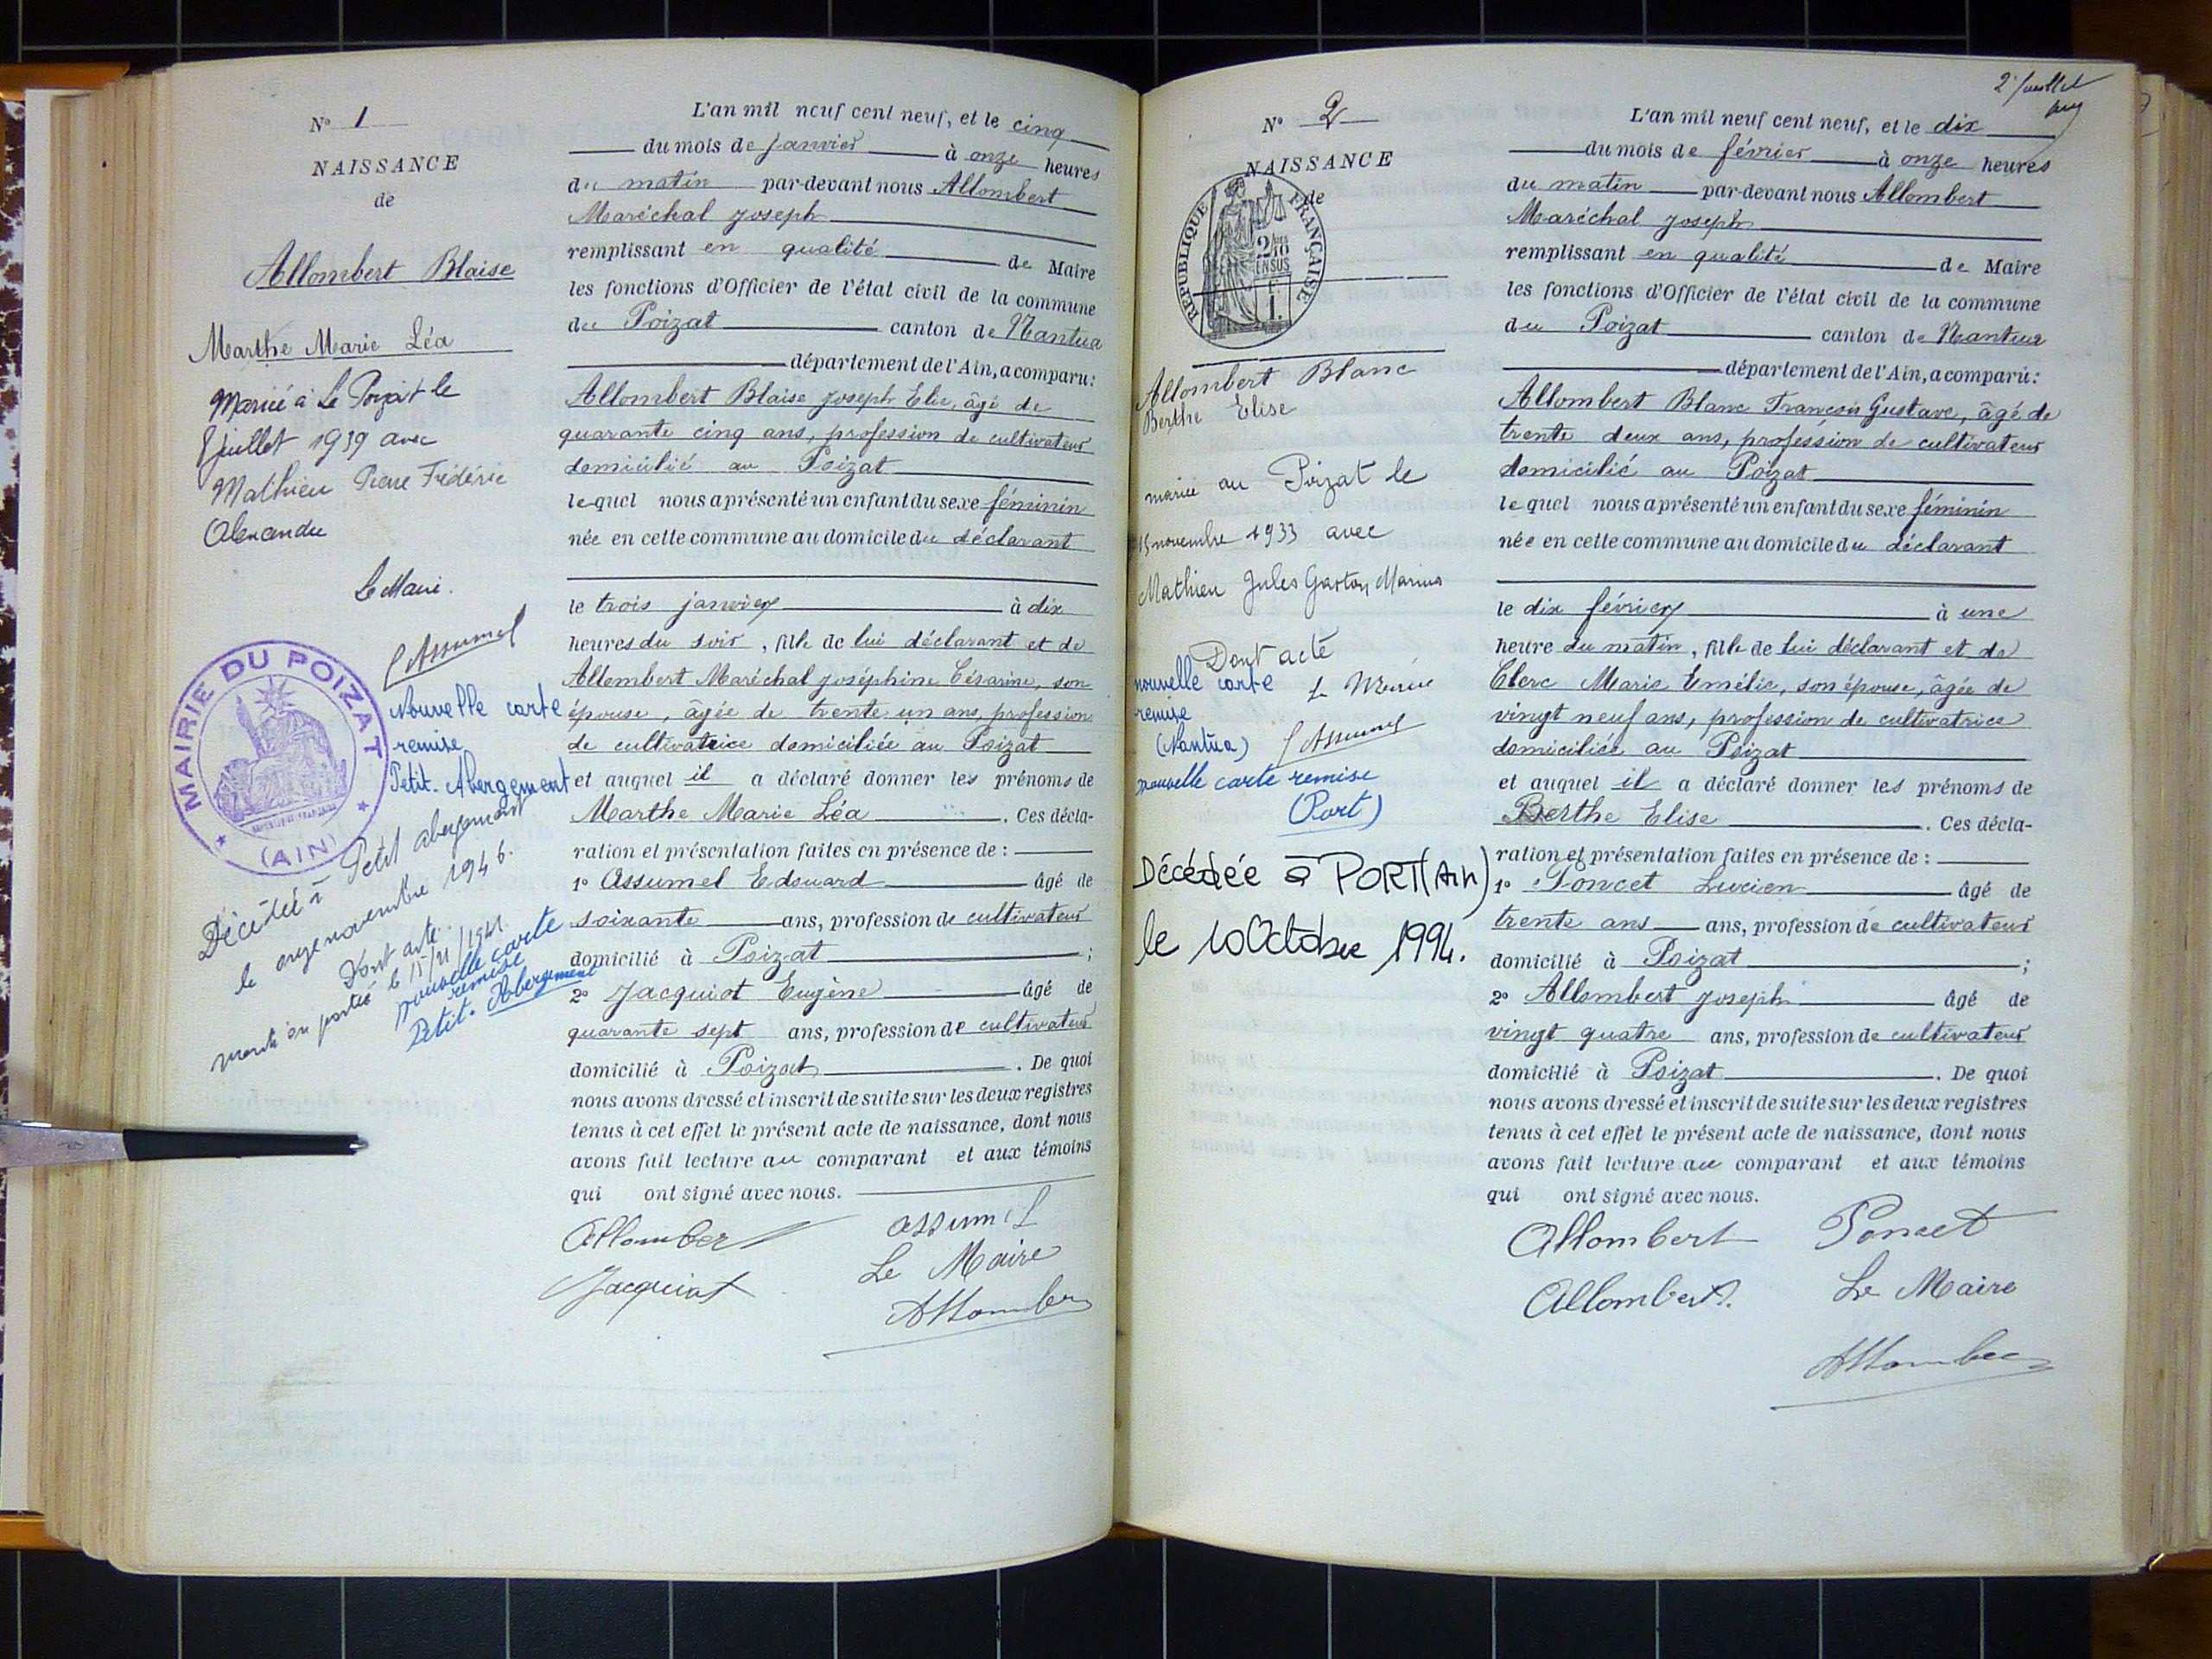 N° 1
NAISSANCE
de
Allombert Blaise
Marthe Marie Léa
Mariée à Le Poizat le
8 juillet 1939 avec
Mathieu Pierre Frédéric
Alexandre
Le Maire.
Assumel
MAIRIE DU POIZAT
(AIN)
Nouvelle carte
remise
Petit-Abergement
Décédée à Petit Abergement
le onze novembre 1946.
Dont acte.
nouvelle carte
remise
Petit-Abergement
L'an mil neuf cent neuf, et le cinq
du mois de janvier à onze heures
du matin par-devant nous Allombert
Maréchal Joseph
remplissant en qualité de Maire
les fonctions d'Officier de l'état civil de la commune
du Poizat canton de Nantua
département de l'Ain, a comparu:
Allombert Blaise Joseph Elie, âgé de
quarante cinq ans, profession de cultivateur
domicilié au Poizat
lequel nous a présenté un enfant du sexe féminin
née en cette commune au domicile du déclarant
le trois janvier à dix
heures du soir, fille de lui déclarant et de
Allombert Maréchal Joséphine Césarine, son
épouse, âgée de trente un ans, profession
de cultivatrice domiciliée au Poizat
et auquel il a déclaré donner les prénoms de
Marthe Marie Léa. Ces décla-
ration et présentation faites en présence de :
1° Assumel Edouard âgé de
soixante ans, profession de cultivateur
domicilié à Poizat ;
2° Jacquiot Eugène âgé de
quarante sept ans, profession de cultivateur
domicilié à Poizat. De quoi
nous avons dressé et inscrit de suite sur les deux registres
tenus à cet effet le présent acte de naissance, dont nous
avons fait lecture au comparant et aux témoins
qui ont signé avec nous.
Allombert Assumel
Jacquiot Le Maire
Allombert
2e feuillet
N° 2
NAISSANCE
de
REPUBLIQUE FRANÇAISE
2/10
EN SUS
1.
Allombert Blanc
Berthe Elise
mariée au Poizat le
15 novembre 1933 avec
Mathieu Jules Gaston Marius
Dont acte
Le Maire
Assumel
nouvelle carte
remise
(Nantua)
nouvelle carte remise
(Port)
Décédée à PORT (Ain)
le 10 Octobre 1994.
L'an mil neuf cent neuf, et le dix
du mois de février à onze heures
du matin par-devant nous Allombert
Maréchal Joseph
remplissant en qualité de Maire
les fonctions d'Officier de l'état civil de la commune
du Poizat canton de Nantua
département de l'Ain, a comparu:
Allombert Blanc François Gustave, âgé de
trente deux ans, profession de cultivateur
domicilié au Poizat
lequel nous a présenté un enfant du sexe féminin
née en cette commune au domicile du déclarant
le dix février à une
heure du matin, fille de lui déclarant et de
Clerc Marie Emélie, son épouse, âgée de
vingt neuf ans, profession de cultivatrice
domiciliée au Poizat
et auquel il a déclaré donner les prénoms de
Berthe Elise. Ces décla-
ration et présentation faites en présence de :
1° Poncet Lucien âgé de
trente ans ans, profession de cultivateur
domicilié à Poizat ;
2° Allombert Joseph âgé de
vingt quatre ans, profession de cultivateur
domicilié à Poizat. De quoi
nous avons dressé et inscrit de suite sur les deux registres
tenus à cet effet le présent acte de naissance, dont nous
avons fait lecture au comparant et aux témoins
qui ont signé avec nous.
Allombert Poncet
Allombert. Le Maire
Allombert